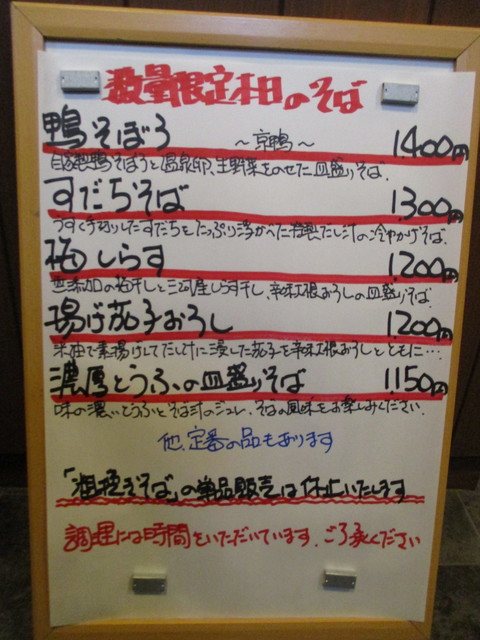 数量限定本日のそば
鴨そぼろ ～京鴨～ 1.400円
自家製鴨そぼろと温泉卵、生野菜をのせた皿盛りそば.
すだちそば 1.300円
うすく手切りしたすだちをたっぷり浮かべた特製だし汁の冷やかけそば.
梅しらす 1.200円
無添加の梅干しと三河産しらす干し、辛味大根おろしの皿盛りそば.
揚げ茄子おろし 1.200円
米油で素揚げしてだし汁に浸した茄子を辛味大根おろしとともに…
濃厚とうふの皿盛りそば 1.150円
味の濃いとうふとそば汁のジュレ、そばの風味をお楽しみください.
他.定番の品もあります
「粗挽きそば」の単品販売は休止いたします
調理には時間をいただいています.ご了承ください